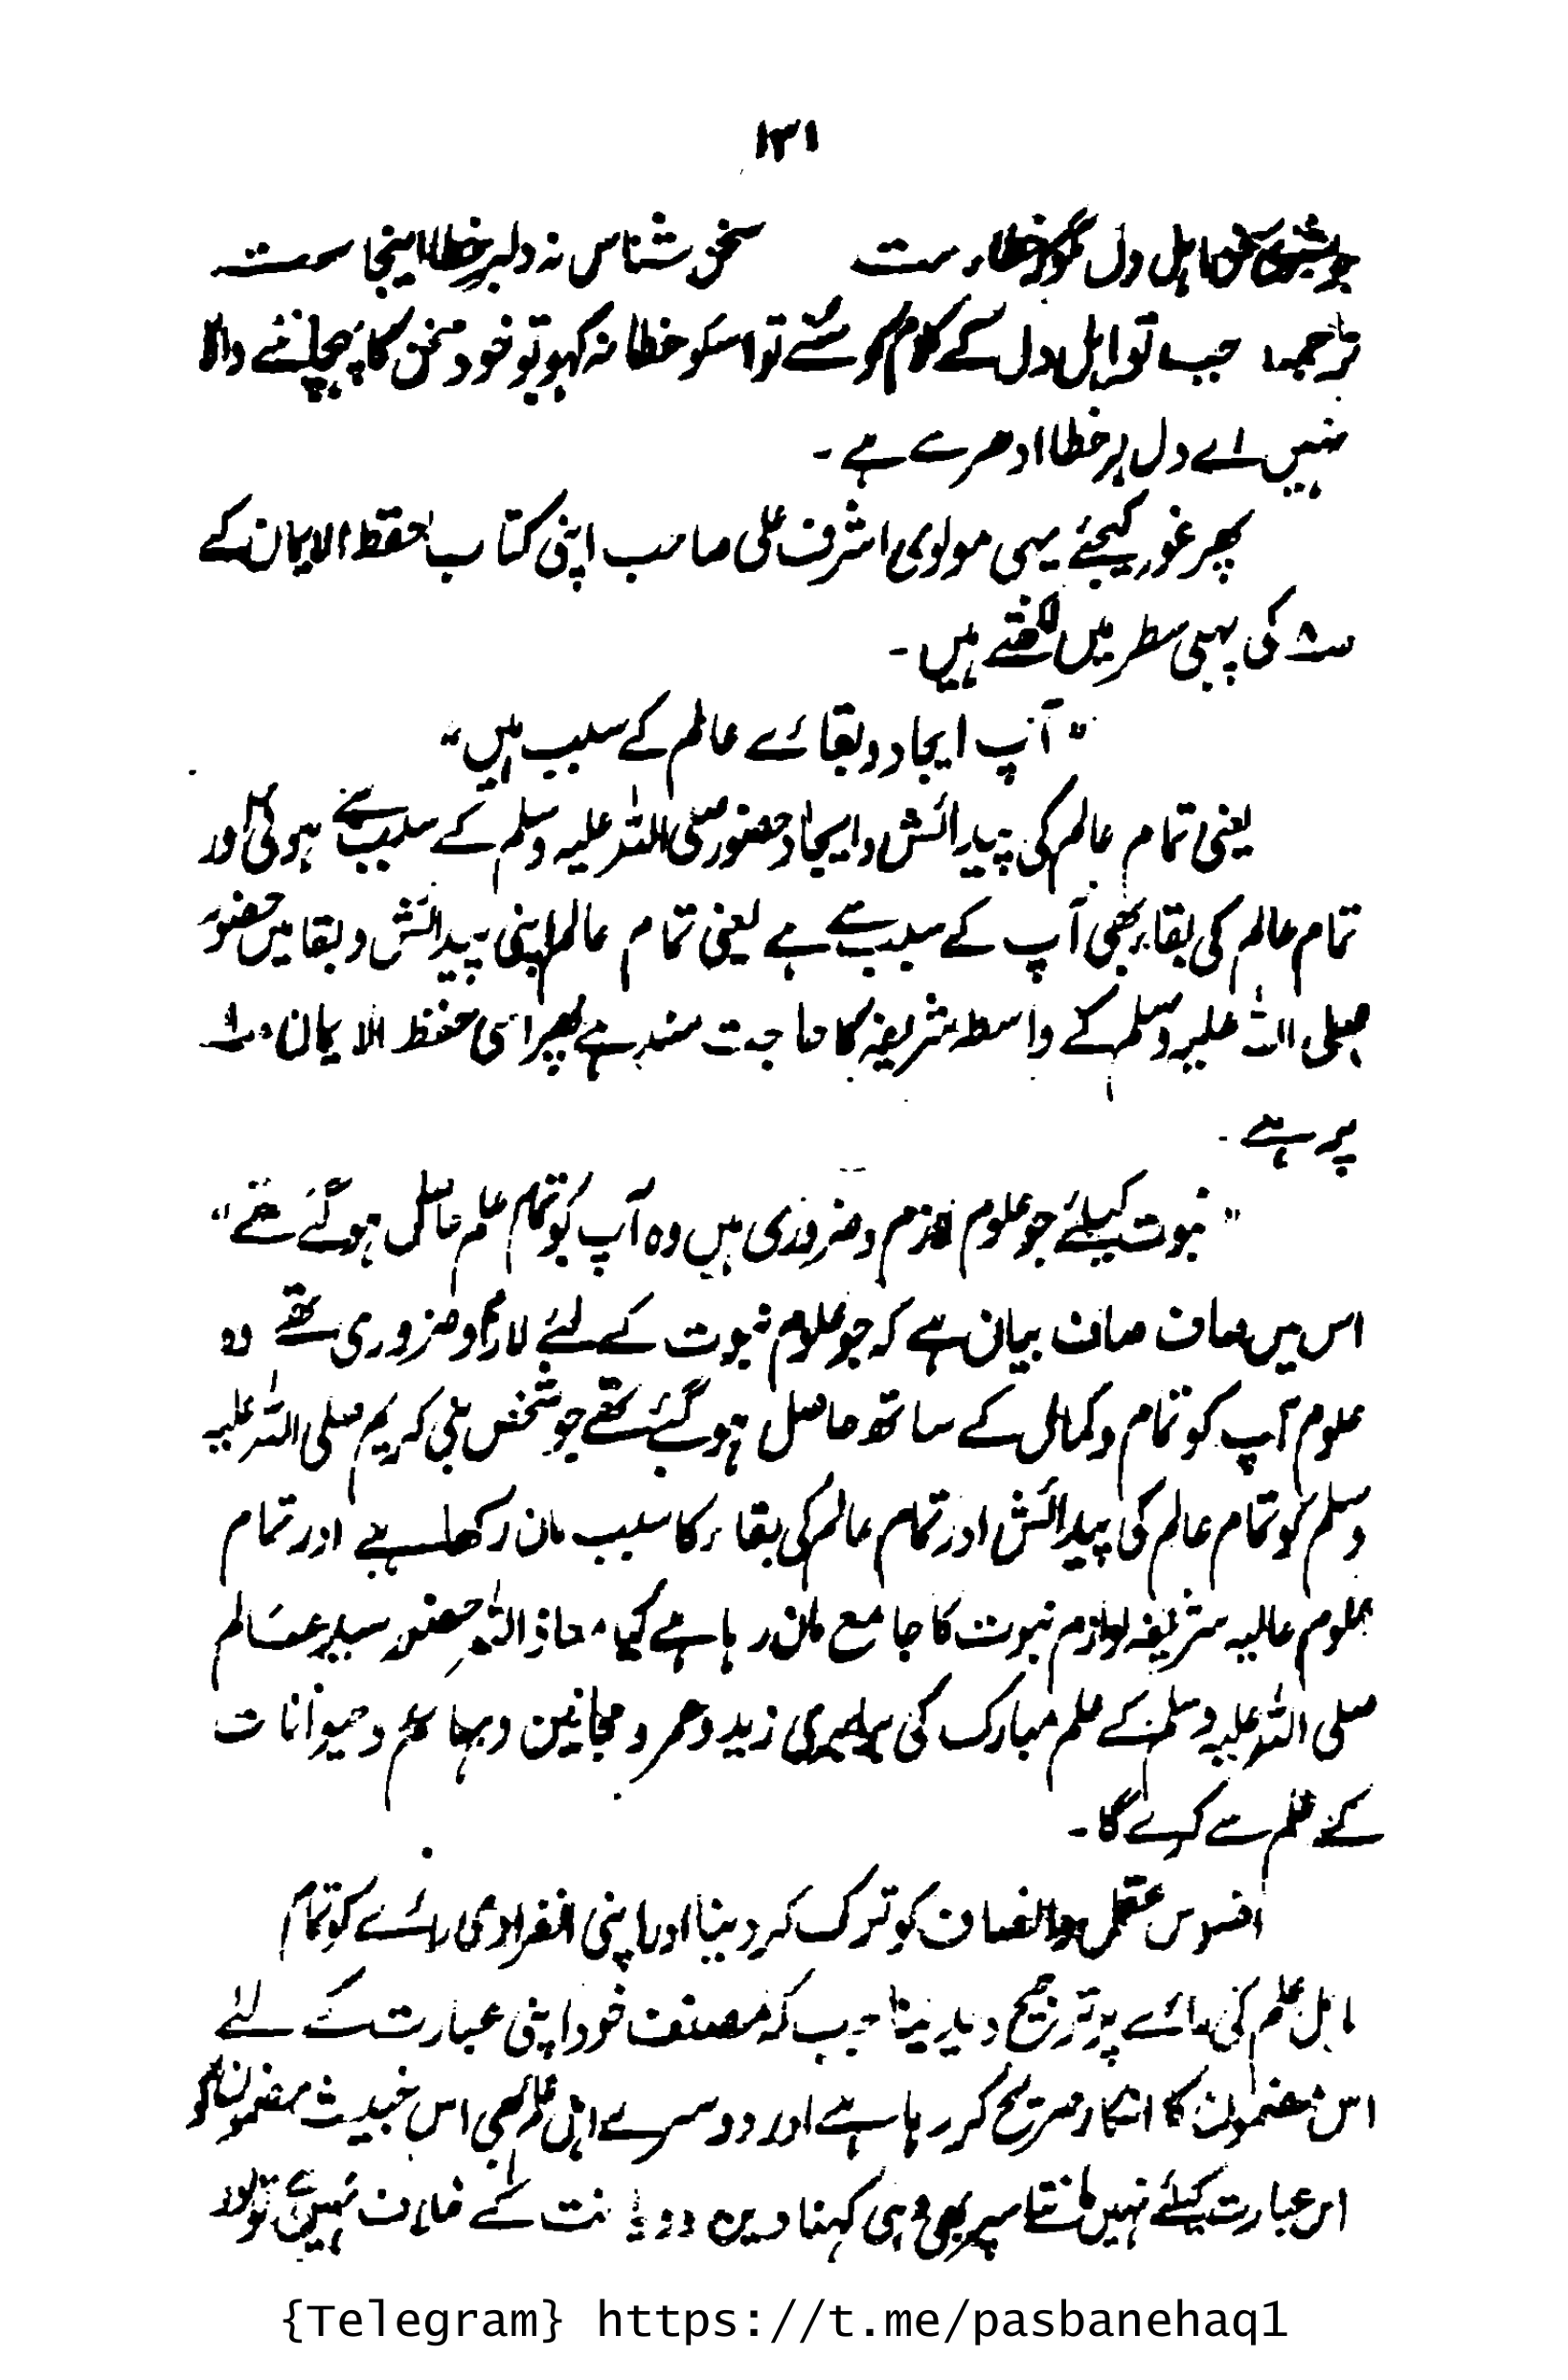 ۱۳۱
چو بشنوی سخن اہل دل مگو کہ خطاست سخن شناس نہ دلبر خطا اینجا ست
ترجمہ جب تو اہل دل کے کلام کو سنے تو اسکو خطا نہ کہو تو خود سخن کا پہچاننے والا
نہیں اے دل پر خطا ادھر سے ہے ۔
پھر غور کیجئے یہی مولوی اشرف علی صاحب اپنی کتاب حفظ الایمان کے
ص۸ کی پہلی سطر میں لکھتے ہیں ۔
" آپ ایجاد و بقائے عالم کے سبب ہیں "
یعنی تمام عالم کی پیدائش و ایجاد حضور صلی اللہ علیہ وسلم کے سبب سے ہوئی اور
تمام عالم کی بقاء بھی آپ کے سبب سے ہے یعنی تمام عالم اپنی پیدائش و بقا میں حضور
صلی اللہ علیہ وسلم کے واسطہ شریفہ کا حاجت مند ہے پھر اسی حفظ الایمان
پر ہے ۔
" نبوت کیلئے جو علوم لازم و ضروری ہیں وہ آپ کو تمام علم حاصل ہو گئے تھے "
اس میں صاف صاف بیان ہے کہ جو علوم نبوت کے لئے لازم و ضروری تھے وہ
علوم آپ کو تمام و کمال کے ساتھ حاصل ہو گئے تھے جو شخص نبی کریم صلی اللہ علیہ
وسلم کو تمام عالم کی پیدائش اور تمام عالم کی بقاء کا سبب مان رکھا ہے اور تمام
علوم عالیہ شریفہ لوازم نبوت کا جامع مان رہا ہے کیا معاذ اللہ حضور سید عالم
صلی اللہ علیہ وسلم کے علم مبارک کی برابری زید و عمر و مجانین و بہائم و حیوانات
کے علم سے کرے گا ۔
افسوس عقل و انصاف کو ترک کر دینا اور اپنی انفرادی رائے کو تمام
اہل علم کی رائے پر ترجیح دیدینا جب کہ مصنف خود اپنی عبارت کے لئے
اس مضمون کا انکار صریح کر رہا ہے اور دوسرے اہل علم بھی اس خبیث مضمون کو
اس عبارت کیلئے نہیں مانتا پھر بھی وہی کہنا دین و دیانت کے خلاف نہیں تو اور
{Telegram} https://t.me/pasbanehaq1